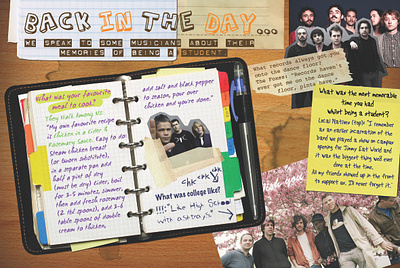 BACK IN THE DAY...
WE SPEAK TO SOME MUSICIANS ABOUT THEIR
MEMORIES OF BEING A STUDENT.
What was your favourite
meal to cook?
They Walk Among Us:
"My own favourite recipe
is chicken in a cider &
Rosemary Sauce. Easy to do.
Clean chicken breast
(or Quorn substitute),
in a separate pan add
half a pint of dry
(must be dry) cider, boil
for 2-5 minutes, simmer,
then add fresh rosemary
(2 tbl spoons), add 2-6
table spoons of double
cream to thicken,
add salt and black pepper
to season, pour over
chicken and you're done."
What was college like?
!!!: "Like High School
with ashtrays"
What records always got you
onto the dance floor?
The Foxes: "Records haven't
ever got me on the dance
floor, pints have."
What was the most memorable
time you had
whilst being a student?
Local Natives (top): "I remember
as an earlier incarnation of the
band we played a show on campus
opening for Jimmy Eat World and
it was the biggest thing we'd ever
done at the time.
All my friends showed up in the front
to support us. I'll never forget it."